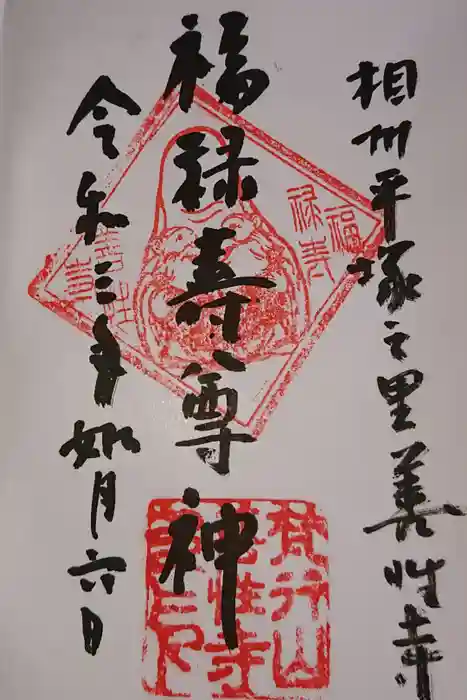 相州平塚之里善性寺
福禄寿尊神
令和三年如月六日
福禄寿
梵行山
善性寺